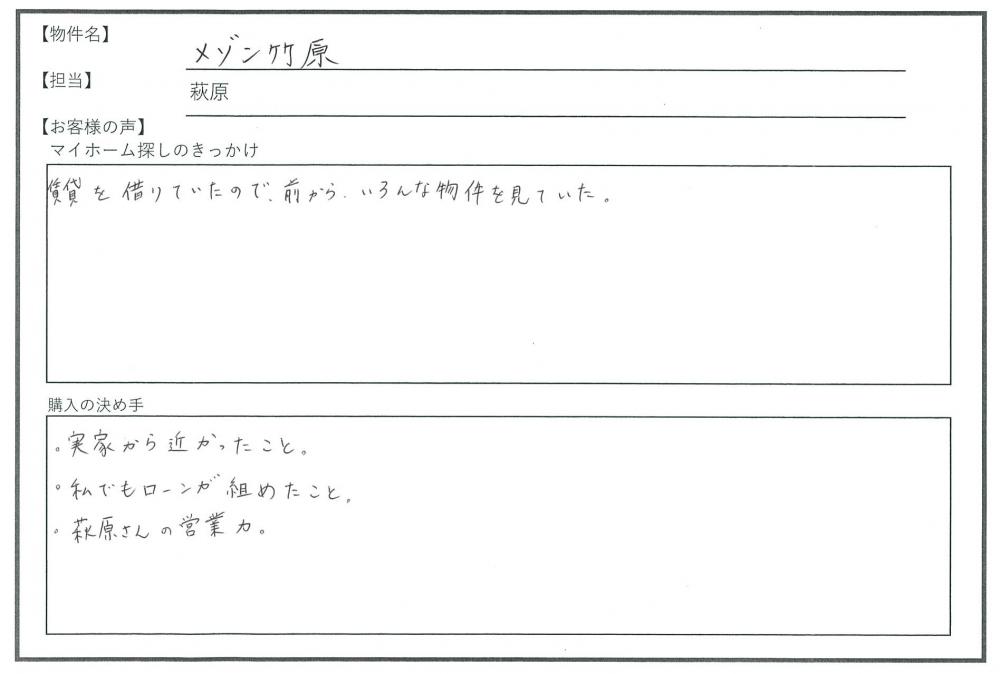 【物件名】
メゾン竹原
【担当】
萩原
【お客様の声】
マイホーム探しのきっかけ
賃貸を借りていたので、前から、いろんな物件を見ていた。
購入の決め手
。実家から近かったこと。
。私でもローンが組めたこと。
。萩原さんの営業力。